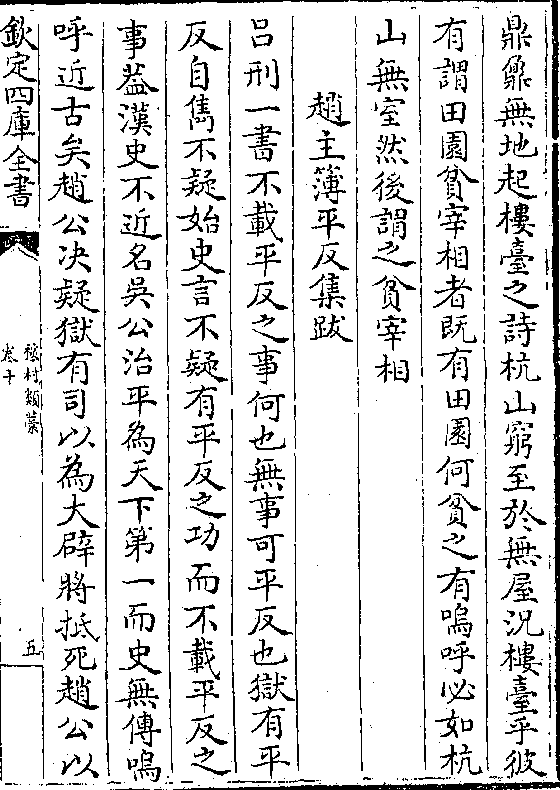 鼎鼐無地起樓臺之詩杭山窮至於無屋況樓臺乎彼
有謂田園貧宰相者既有田園何貧之有嗚呼必如杭
山無室然後謂之貧宰相
趙主簿平反集跋
呂刑一書不載平反之事何也無事可平反也獄有平
反自雋不疑始史言不疑有平反之功而不載平反之
事葢漢史不近名吳公治平為天下第一而史無傳嗚
呼近古矣趙公决疑獄有司以為大辟將抵死趙公以
欽定四庫全書
稼村類藳
卷十
五